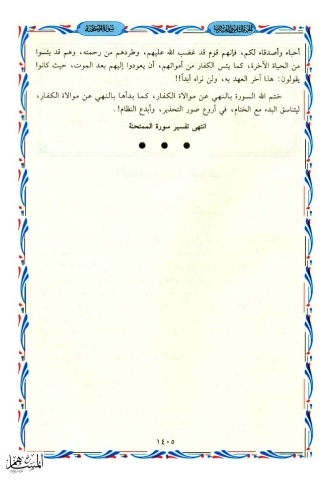 أحباء وأصدقاء لكم، فإنهم قوم قد غضب الله عليهم، وطردهم من رحمته، وهم قد يئسوا
من الحياة الآخرة، كما يئس الكفار من أمواتهم، أن يعودوا إليهم بعد الموت، حيث كانوا
يقولون: هذا آخر العهد به، ولن نراه أبداً!!
ختم الله السورة بالنهي عن موالاة الكفار، كما بدأها بالنهي عن موالاة الكفار،
ليتناسق البدء مع الختام، في أروع صور التحذير، وأبدع النظام!.
انتهى تفسير سورة الممتحنة
١٤٠٥